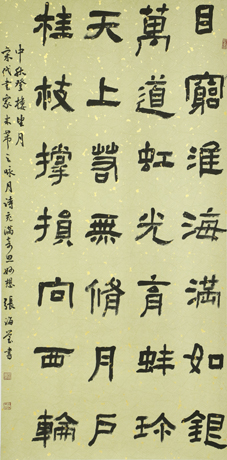 目窮淮海滿如銀
萬道虹光育蚌珍
天上若無脩月戶
桂枝撐損向西輪
中秋登樓望月
宋代書家米芾之咏月詩充滿奇思妙想 張海書